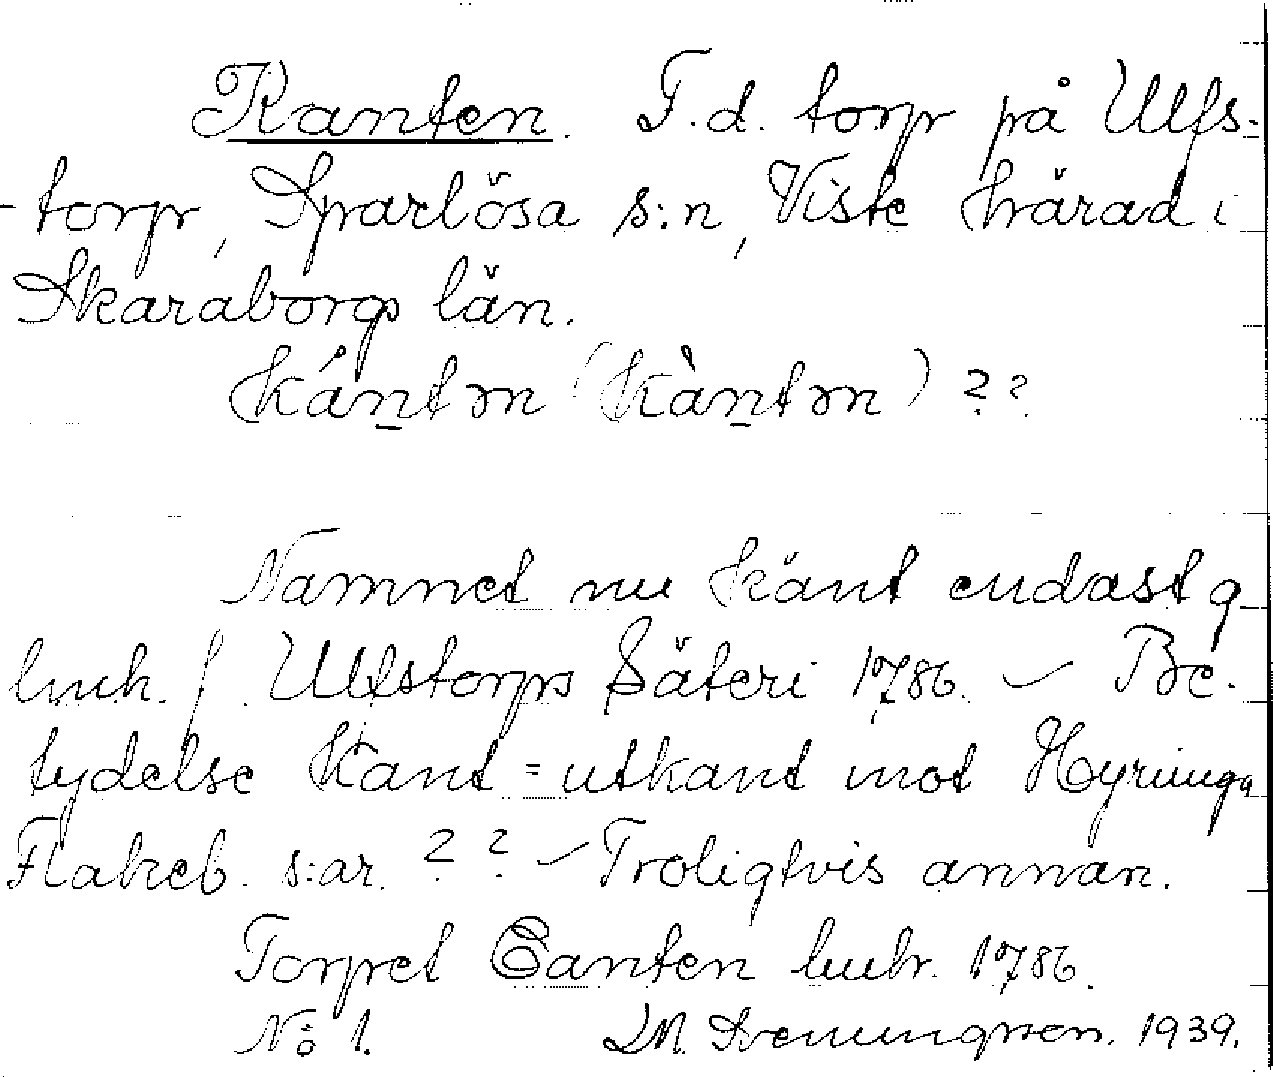 Kanten. F.d. torp på Ulfs-
-torp, Sparlösa s:n, Viste härad i
Skaraborgs län.
kántən (kàntən) ??
Namnet nu känt endast g
huh. f. Ulfstorps Säteri 1786. – Be-
tydelse kant = utkant mot Hyringa
Flakeb. s:ar. ?? – Troligtvis annan.
Torpet Canten huh. 1786.
No 1. LM. Svenungsson. 1939.